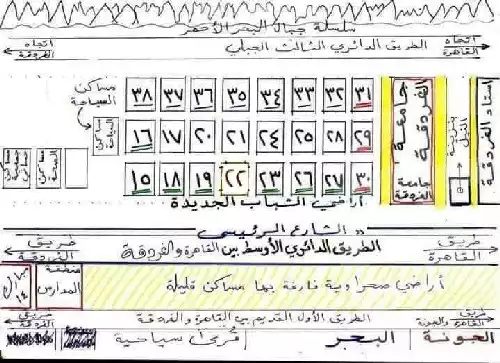 سلسلة جبال البحر الأحمر
اتجاه القاهرة
الطريق الدائري الثالث الجبلي
اتجاه الغردقة
مساكن السياحة
٣٨ ٣٧ ٣٦ ٣٥ ٣٤ ٣٣ ٣٢ ٣١
١٦ ١٧ ٢٠ ٢١ ٢٤ ٢٥ ٢٨ ٢٩
١٥ ١٨ ١٩ ٢٢ ٢٣ ٢٦ ٢٧ ٣٠
جامعة الغردقة
جامعة الغردقة
استاد الغردقة
أراضي الشباب الجديدة
الشارع الرئيسي
طريق القاهرة
الطريق الدائري الأوسط بين القاهرة والغردقة
طريق الغردقة
أراضي صحراوية فارغة بها مساكن قليلة
منطقة المدارس
طريق القاهرة والجونة
الطريق الأول القديم بين القاهرة والغردقة
طريق الغردقة
الجونة
البحر
قرى سياحية